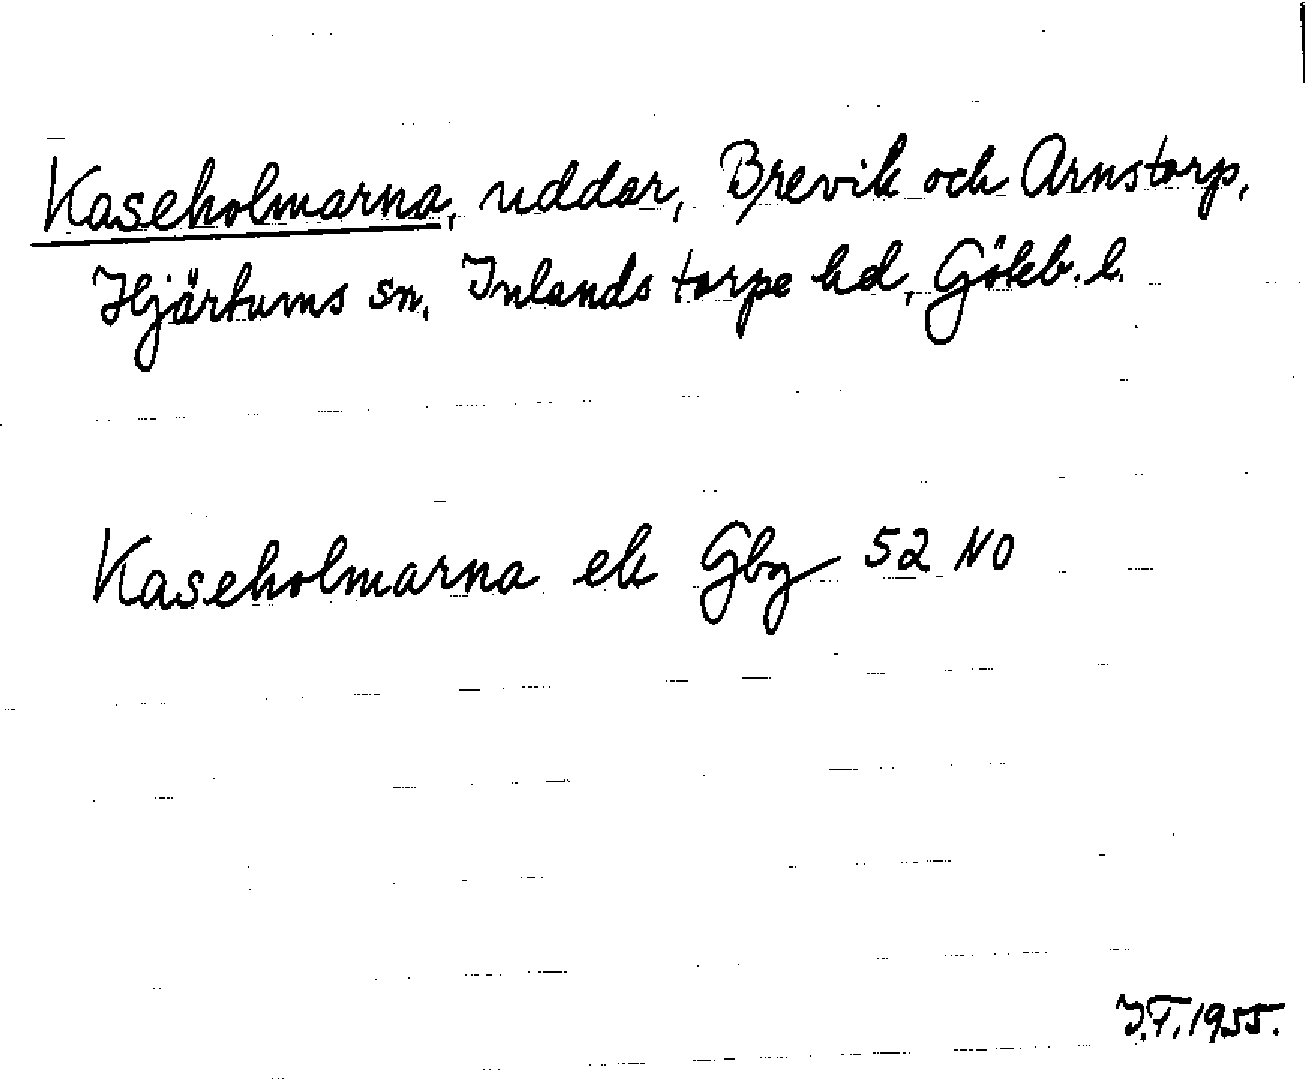 Kaseholmarna, uddar, Brevik och Arnstorp,
Hjärtums sn, Inlands torpe hd, Göteb. l.
Kaseholmarna ek Gbg 52 NO
J.F. 1955.